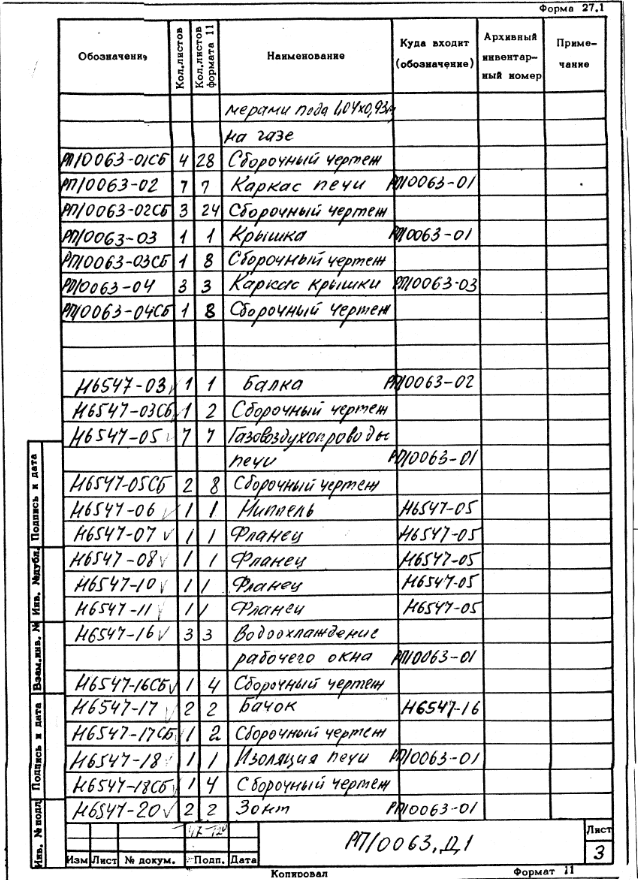 Форма 27.1
Обозначение Кол.листов Кол.листов формата 11 Наименование Куда входит (обозначение) Архивный инвентарный номер Приме-чание
мерами пода 1,04х0,93м
на газе
РП10063-01СБ 4 28 Сборочный чертеж
РП10063-02 7 7 Каркас печи РП10063-01
РП10063-02СБ 3 24 Сборочный чертеж
РП10063-03 1 1 Крышка РП10063-01
РП10063-03СБ 1 8 Сборочный чертеж
РП10063-04 3 3 Каркас крышки РП10063-03
РП10063-04СБ 1 8 Сборочный чертеж
Н6547-03 1 1 Балка РП10063-02
Н6547-03СБ 1 2 Сборочный чертеж
Н6547-05 7 7 Газовоздухопроводы
печи РП10063-01
Н6547-05СБ 2 8 Сборочный чертеж
Н6547-06 1 1 Ниппель Н6547-05
Н6547-07 1 1 Фланец Н6547-05
Н6547-08 1 1 Фланец Н6547-05
Н6547-10 1 1 Фланец Н6547-05
Н6547-11 1 1 Фланец Н6547-05
Н6547-16 3 3 Водоохлаждение
рабочего окна РП10063-01
Н6547-16СБ 1 4 Сборочный чертеж
Н6547-17 2 2 Бачок Н6547-16
Н6547-17СБ 1 2 Сборочный чертеж
Н6547-18 1 1 Изоляция печи РП10063-01
Н6547-18СБ 1 4 Сборочный чертеж
Н6547-20 2 2 Зонт РП10063-01
Инв. № подл Подпись и дата Взам.инв. № Инв. №дубл. Подпись и дата
Изм Лист № докум. Подп. Дата
РП10063,Д1
Лист
3
Копировал Формат 11